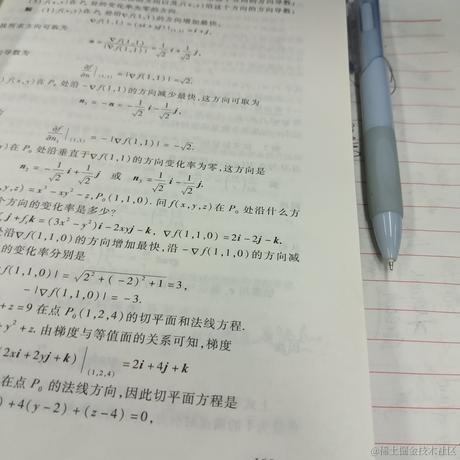 (1,1)的方向增加最快,
∇f(1,1)=(xi+yj)|(1,1)=i+j,
所求方向可取为
n=∇f(1,1)/|∇f(1,1)|=1/√2 i+1/√2 j,
导数为
∂f/∂n|(1,1)=|∇f(1,1)|=√2.
在 P₀ 处沿-∇f(1,1)的方向减少最快,这方向可取为
n₁=-n=-1/√2 i-1/√2 j,
∂f/∂n₁|(1,1)=-|∇f(1,1)|=-√2.
在 P₀ 处沿垂直于∇f(1,1)的方向变化率为零,这方向是
n₂=-1/√2 i+1/√2 j 或 n₃=1/√2 i-1/√2 j.
y,z)=x³-xy²-z,P₀(1,1,0).问f(x,y,z)在 P₀ 处沿什么方
个方向的变化率是多少?
j+f_zk=(3x²-y²)i-2xyj-k, ∇f(1,1,0)=2i-2j-k.
处沿∇f(1,1,0)的方向增加最快,沿-∇f(1,1,0)的方向减
的变化率分别是
f(1,1,0)|=√2²+(-2)²+1=3,
-|∇f(1,1,0)|=-3.
+z=9在点 P₀(1,2,4)的切平面和法线方程.
+y²+z.由梯度与等值面的关系可知,梯度
(2xi+2yj+k)|(1,2,4)=2i+4j+k
在点 P₀ 的法线方向,因此切平面方程是
)+4(y-2)+(z-4)=0,
@稀土掘金技术社区